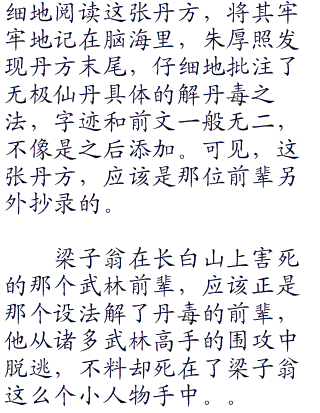 细地阅读这张丹方，将其牢
牢地记在脑海里，朱厚照发
现丹方末尾，仔细地批注了
无极仙丹具体的解丹毒之
法，字迹和前文一般无二，
不像是之后添加。可见，这
张丹方，应该是那位前辈另
外抄录的。
梁子翁在长白山上害死
的那个武林前辈，应该正是
那个设法解了丹毒的前辈，
他从诸多武林高手的围攻中
脱逃，不料却死在了梁子翁
这么个小人物手中。。